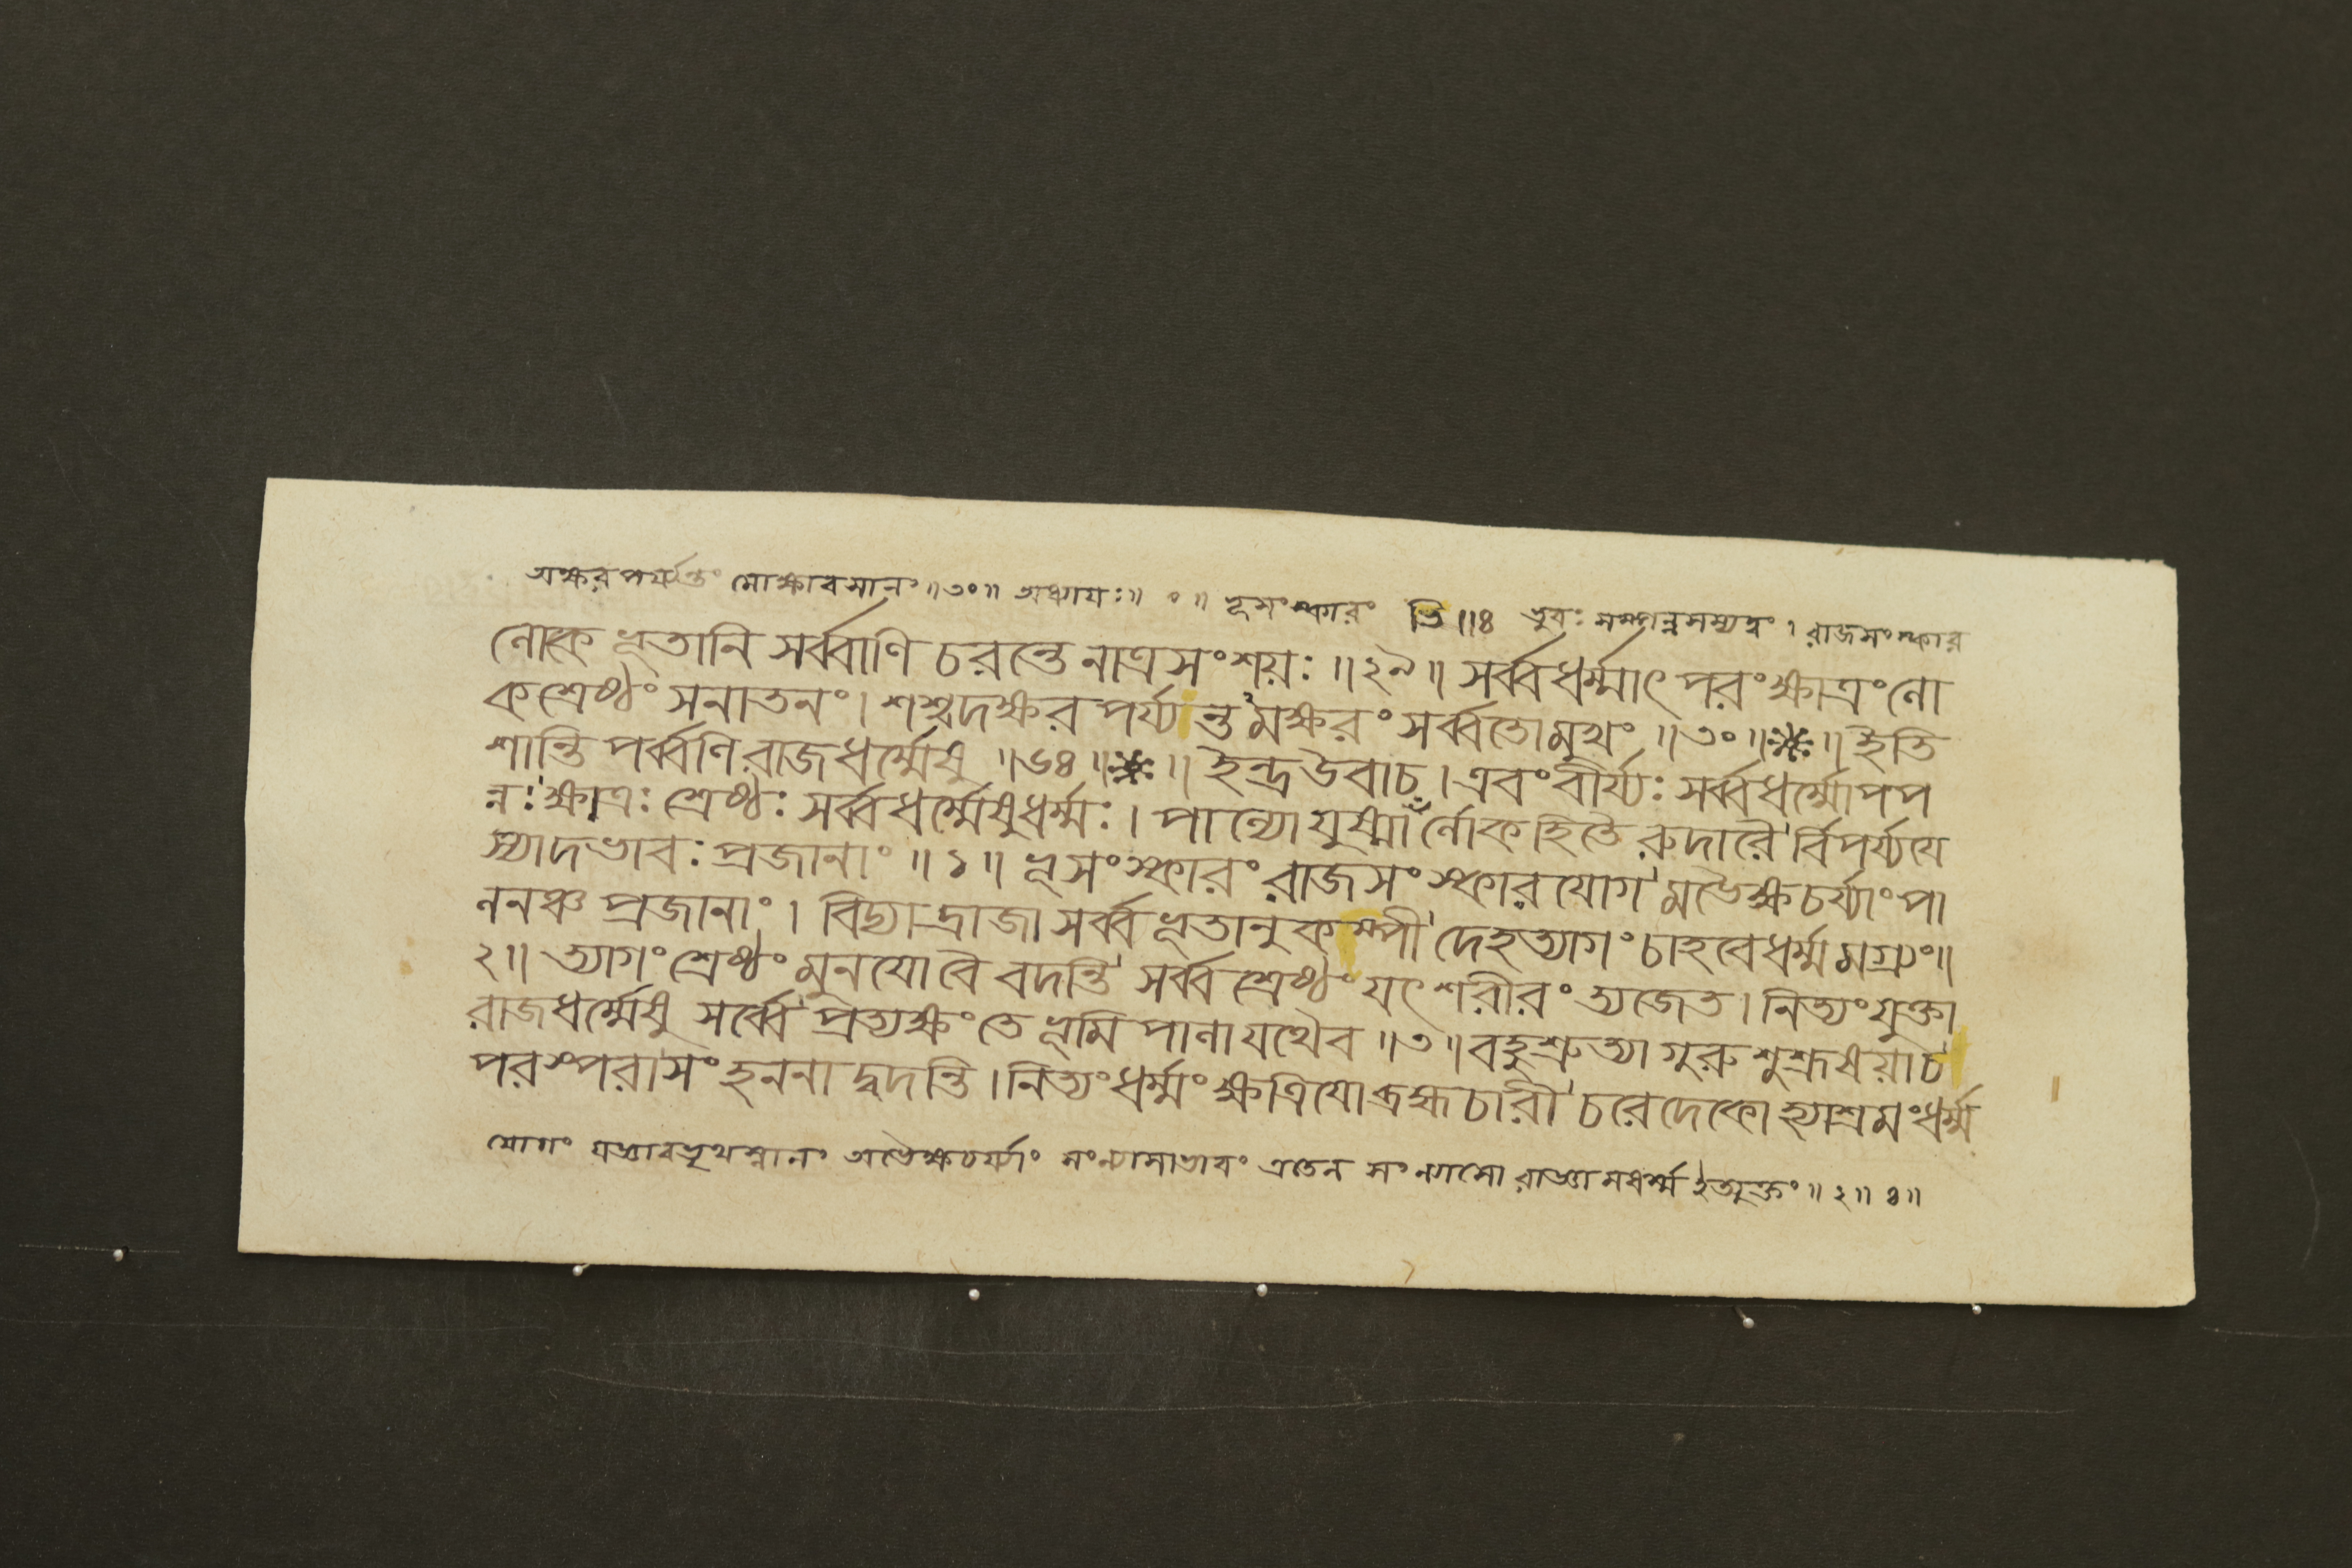 অক্ষরপর্য্যন্তং মোক্ষাবসানং ॥৩০॥ অধ্যায়ঃ॥ ০ ॥ ভূসংস্কারং তি॥৪ ভুবঃ সম্পন্নসম্যত্বং । রাজসংস্কার
লোকে ভূতানি সর্ব্বাণি চরন্তে নাত্রসংশয়ঃ ॥২৯॥ সর্ব্বধর্ম্মাৎ পরংক্ষাত্রংলো
কশ্রেষ্ঠং সনাতনং। শশ্বদক্ষর পর্য্যন্তমক্ষরং সর্ব্বতোমুখং ॥৩০॥※॥ ইতি
শান্তি পর্ব্বণি রাজধর্ম্মেষু ॥৬৪॥※॥ ইন্দ্রউবাচ।এবংবীর্য্যঃ সর্ব্বধর্ম্মোপপ
ন্নঃক্ষাত্রঃ শ্রেষ্ঠঃ সর্ব্বধর্ম্মেষুধর্ম্মঃ। পাল্যো যুষ্মাঁর্লোকহিতৈ রুদারৈর্বিপর্য্যযে
স্যাদভাবঃ প্রজানাং ॥১॥ ভূসংস্কারং রাজসংস্কারযোগমভৈক্ষচর্য্যাংপা
লনঞ্চ প্রজানাং। বিদ্যাদ্রাজা সর্ব্বভূতানুকম্পী দেহত্যাগং চাহবেধর্ম্মমগ্র্যং॥
২॥ ত্যাগংশ্রেষ্ঠং মুনযোবৈ বদন্তি সর্ব্বশ্রেষ্ঠংযৎশরীরং ত্যজেত।নিত্যংযুক্তা
রাজধর্ম্মেষু সর্ব্বে প্রত্যক্ষংতে ভূমিপালাযথৈব ॥৩॥বহুশ্রুত্যা গুরুশুশ্রূষয়াচ
পরস্পরাসংহননাদ্বদন্তি।নিত্যংধর্ম্মংক্ষত্রিযোব্রহ্মচারী চরেদেকোহ্যাশ্রমংধর্ম্ম
যোগং যজ্ঞাবভৃথস্নানং অভৈক্ষচর্য্যাং সংন্যাসাভাবং এতেন সংন্যাসো রাজ্ঞামধর্ম্ম ইত্যুক্তং॥২॥৪॥